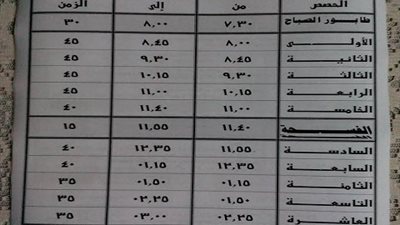 الحصص من إلى الزمن
طابور الصباح ٧,٣٠ ٨,٠٠ ٣٠
الأولى ٨,٠٠ ٨,٤٥ ٤٥
الثانية ٨,٤٥ ٩,٣٠ ٤٥
الثالثة ٩,٣٠ ١٠,١٥ ٤٥
الرابعة ١٠,١٥ ١١,٠٠ ٤٥
الخامسة ١١,٠٠ ١١,٤٠ ٤٠
الفسحة ١١,٤٠ ١١,٥٥ ١٥
السادسة ١١,٥٥ ١٢,٣٥ ٤٠
السابعة ١٢,٣٥ ٠١,١٥ ٤٠
الثامنة ٠١,١٥ ٠١,٥٠ ٣٥
التاسعة ٠١,٥٠ ٠٢,٢٥ ٣٥
العاشرة ٠٢,٢٥ ٠٣,٠٠ ٣٥